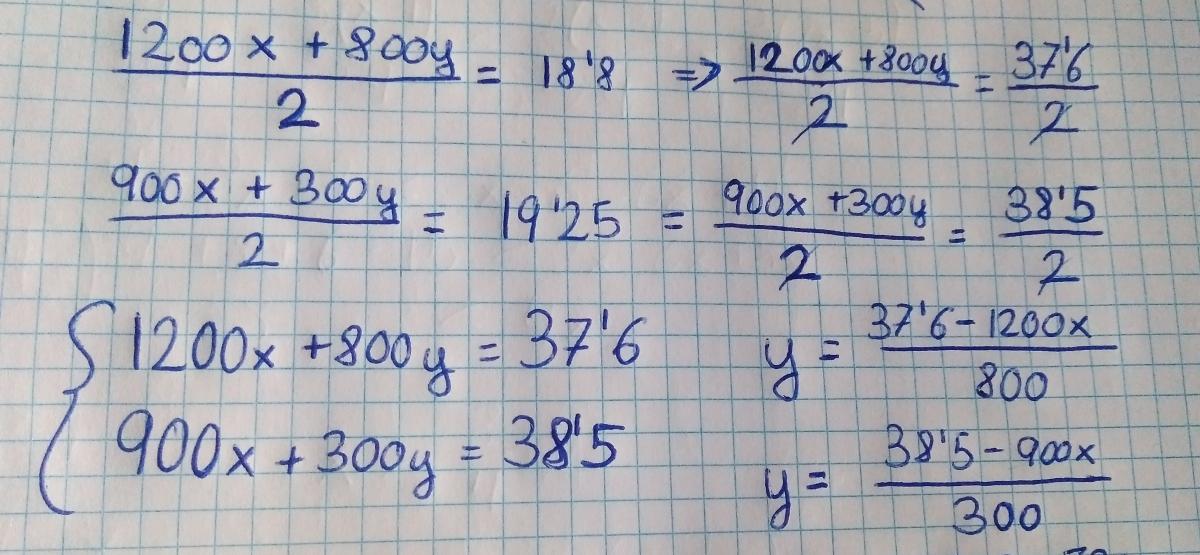 (1200x + 800y)/2 = 18'8 => (1200x + 800y)/2 = 37'6/2
(900x + 300y)/2 = 19'25 = (900x + 300y)/2 = 38'5/2
{ 1200x + 800y = 37'6 y = (37'6 - 1200x)/800
900x + 300y = 38'5 y = (38'5 - 900x)/300